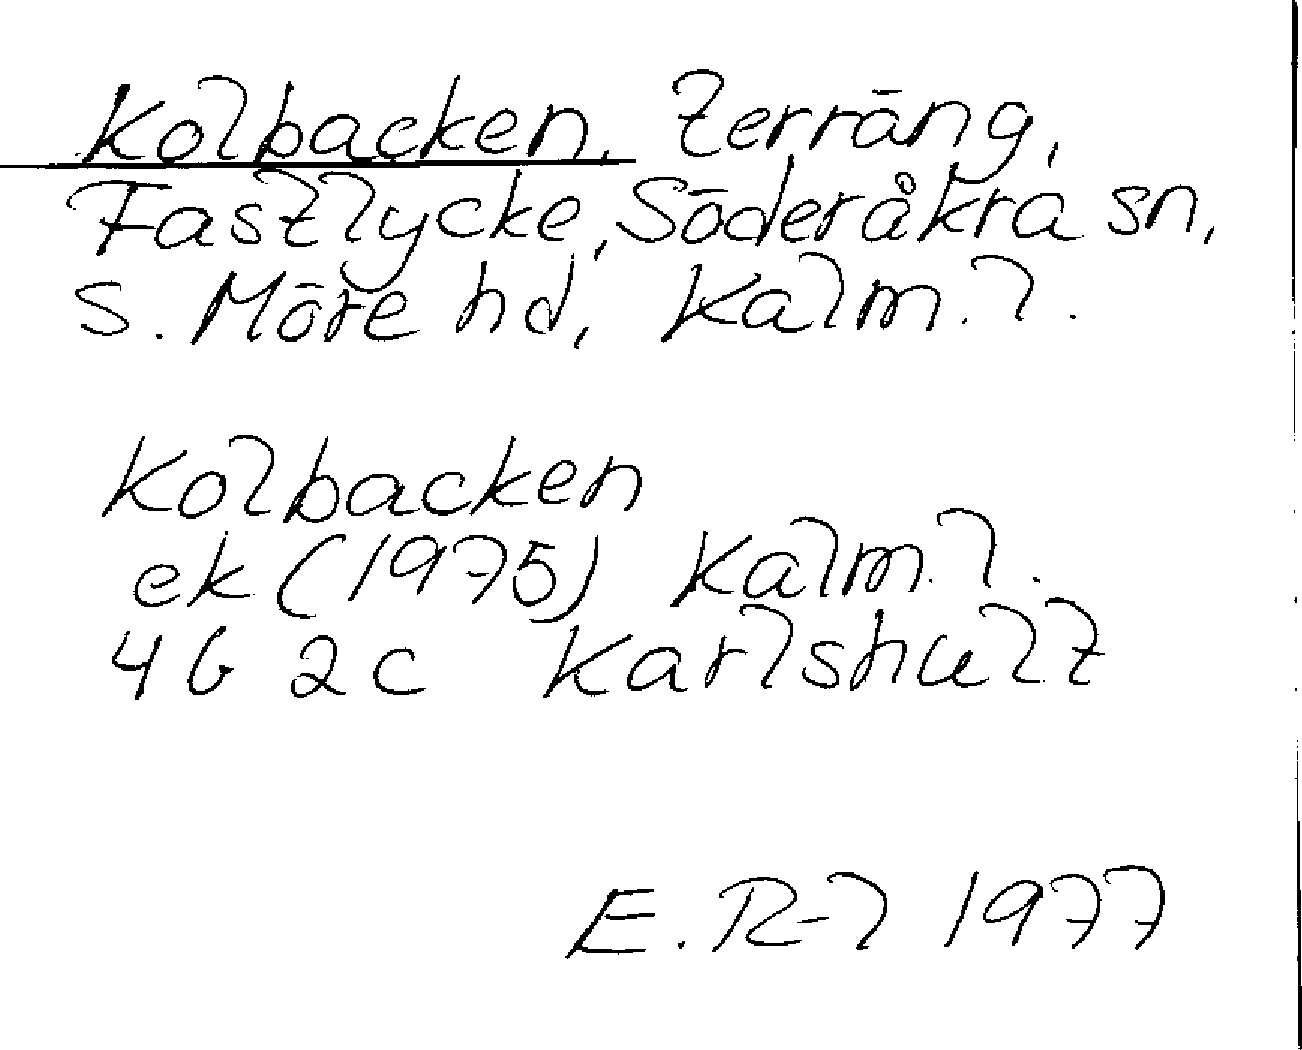 Kolbacken, terräng,
Fastlycke, Söderåkra sn,
S. Möre hd, Kalm. l.
Kolbacken
ek (1975) Kalm. l.
4G 2c Karlshult
E. R-l 1977